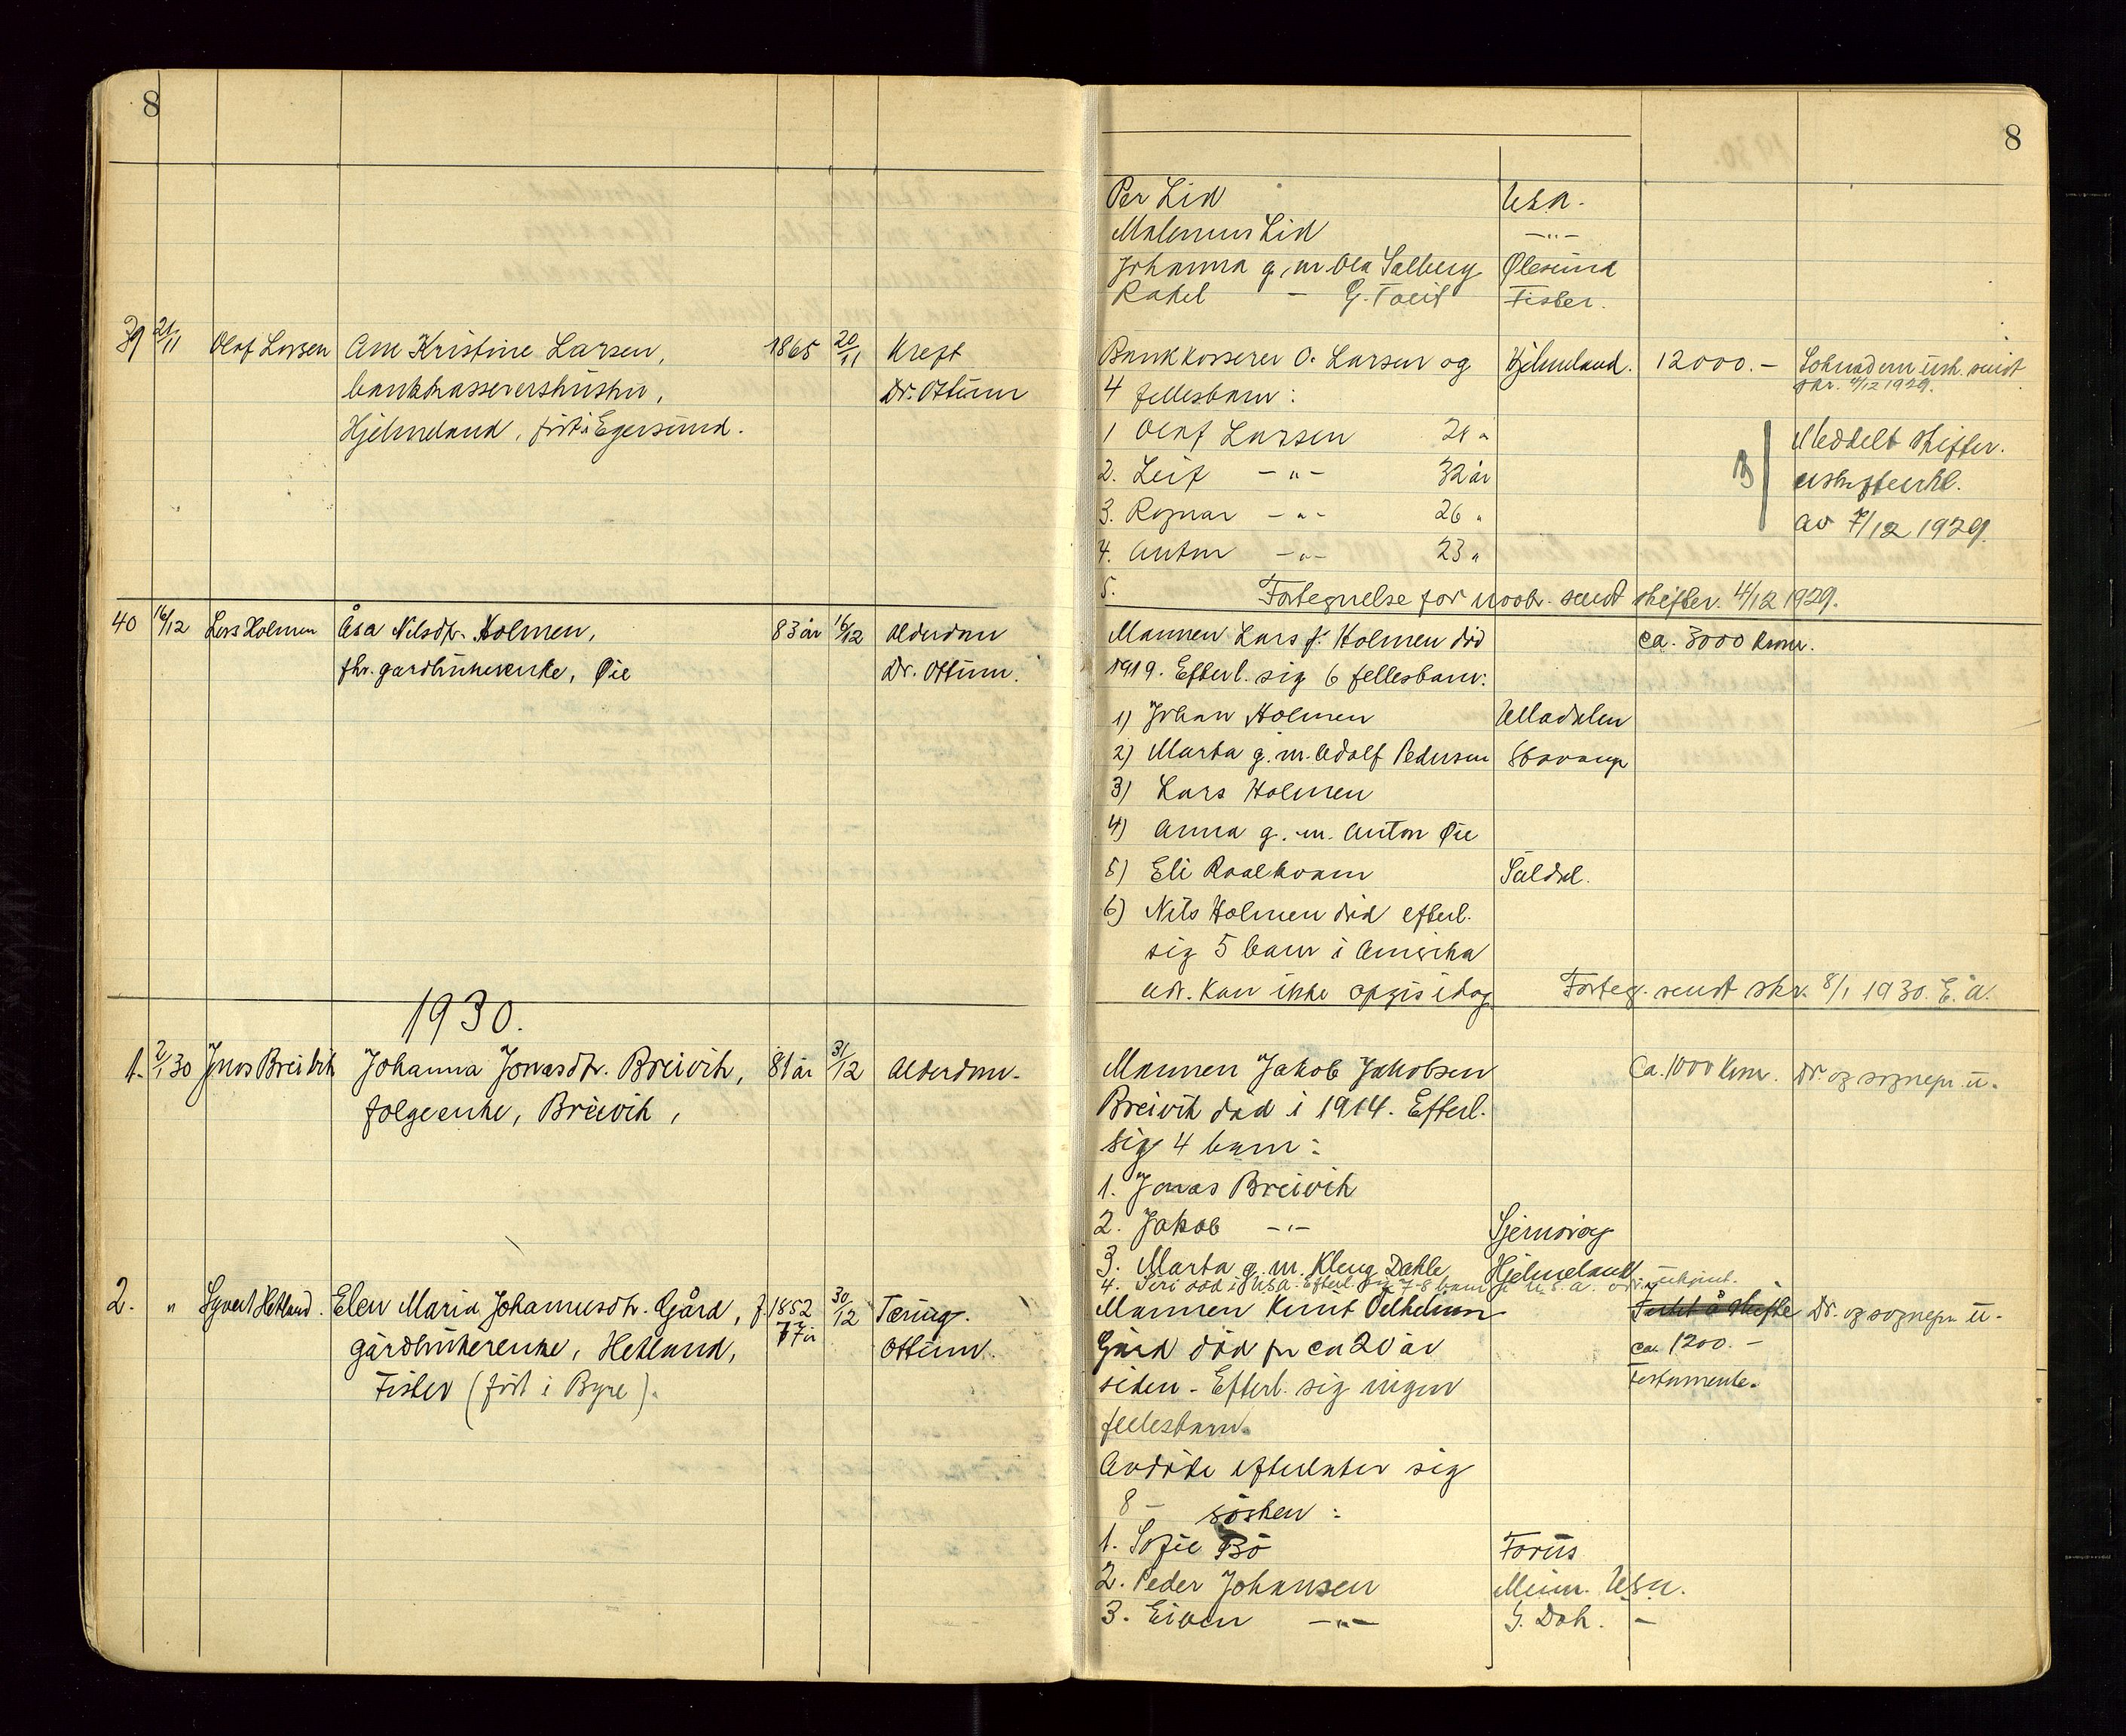 8
8
Per Lid
U.S.A.
Malenus Lid
-"-
Johanna g. m. Ola Salberg
Ølesund
Rakel - G.
Fister.
39 21/11 Olaf Larsen
Ane Kristine Larsen,
1865 20/11 Kreft
bankkasserershustru,
Dr. Ottum
Hjelmeland, född i Egersund.
Bankkasserer O. Larsen og
Hjelmeland.
12000.-
4 fellesbarn:
1 Olaf Larsen
2. Leif -"- 32 år
3. Ragnar -"- 26 "
4. Anton -"- 23 "
5.
skr. 4/12 1929.
Meddelt skifter.
av 7/12 1929.
Fortegnelse for vedk. sendt skifter. 4/12 1929.
40 16/12 Lars Holmen
Åsa Nilsdtr. Holmen,
83 år 16/12 Alderdom
fhv. gardbrukerenke, Øie
Dr. Ottum.
Mannen Lars J. Holmen död
ca. 3000 kroner.
1919. Efterl. sig 6 fellesbarn:
1) Johan Holmen
Ulladalen
2) Marta g. m. Adolf Pedersen
Stavanger
3) Lars Holmen
4) Anna g. m. Anton Øie
5) Eli Raalkvam
Suldal.
6) Nils Holmen död efterl.
sig 5 barn i Amerika
adr. kan ikke opgis idag.
Forteg. sendt skr. 8/1 1930. E. Å.
1930.
1. 2/1 30 Jonas Breivik
Johanna Jonasdtr. Breivik,
81 år 31/12 Alderdom.
folgeenke, Breivik,
Mannen Jakob Jakobsen
Ca. 1000 kroner.
Dr. og sognepr. u.
Breivik död i 1914. Efterl.
sig 4 barn:
1. Jonas Breivik
2. Jakob -"-
Sjernarøy
3. Marta g. m. Kleng Dahle
Hjelmeland
4. Siri död i U.S.A. Efterl. sig 7-8 barn i U.S.A. adr. ukjent.
2. " Syvert Hetland.
Elen Maria Johannesdtr. Gård,
f. 1852 30/12 Tæring.
77 år
gårdbrukerenke, Hetland,
Ottum.
Fister (föd i Byre).
Mannen Knut Vilhelmsen
Dr. og sognepr. u.
Gård död for ca 20 år
ca. 1200.-
siden - Efterl. sig ingen
Testamente.
fellesbarn.
Avdöde efterlater sig
8 - sösken:
1. Sofie Bö
Forus
2. Peder Johansen
Minn. U.S.A.
3. Eiven -"-
S. Dak. -